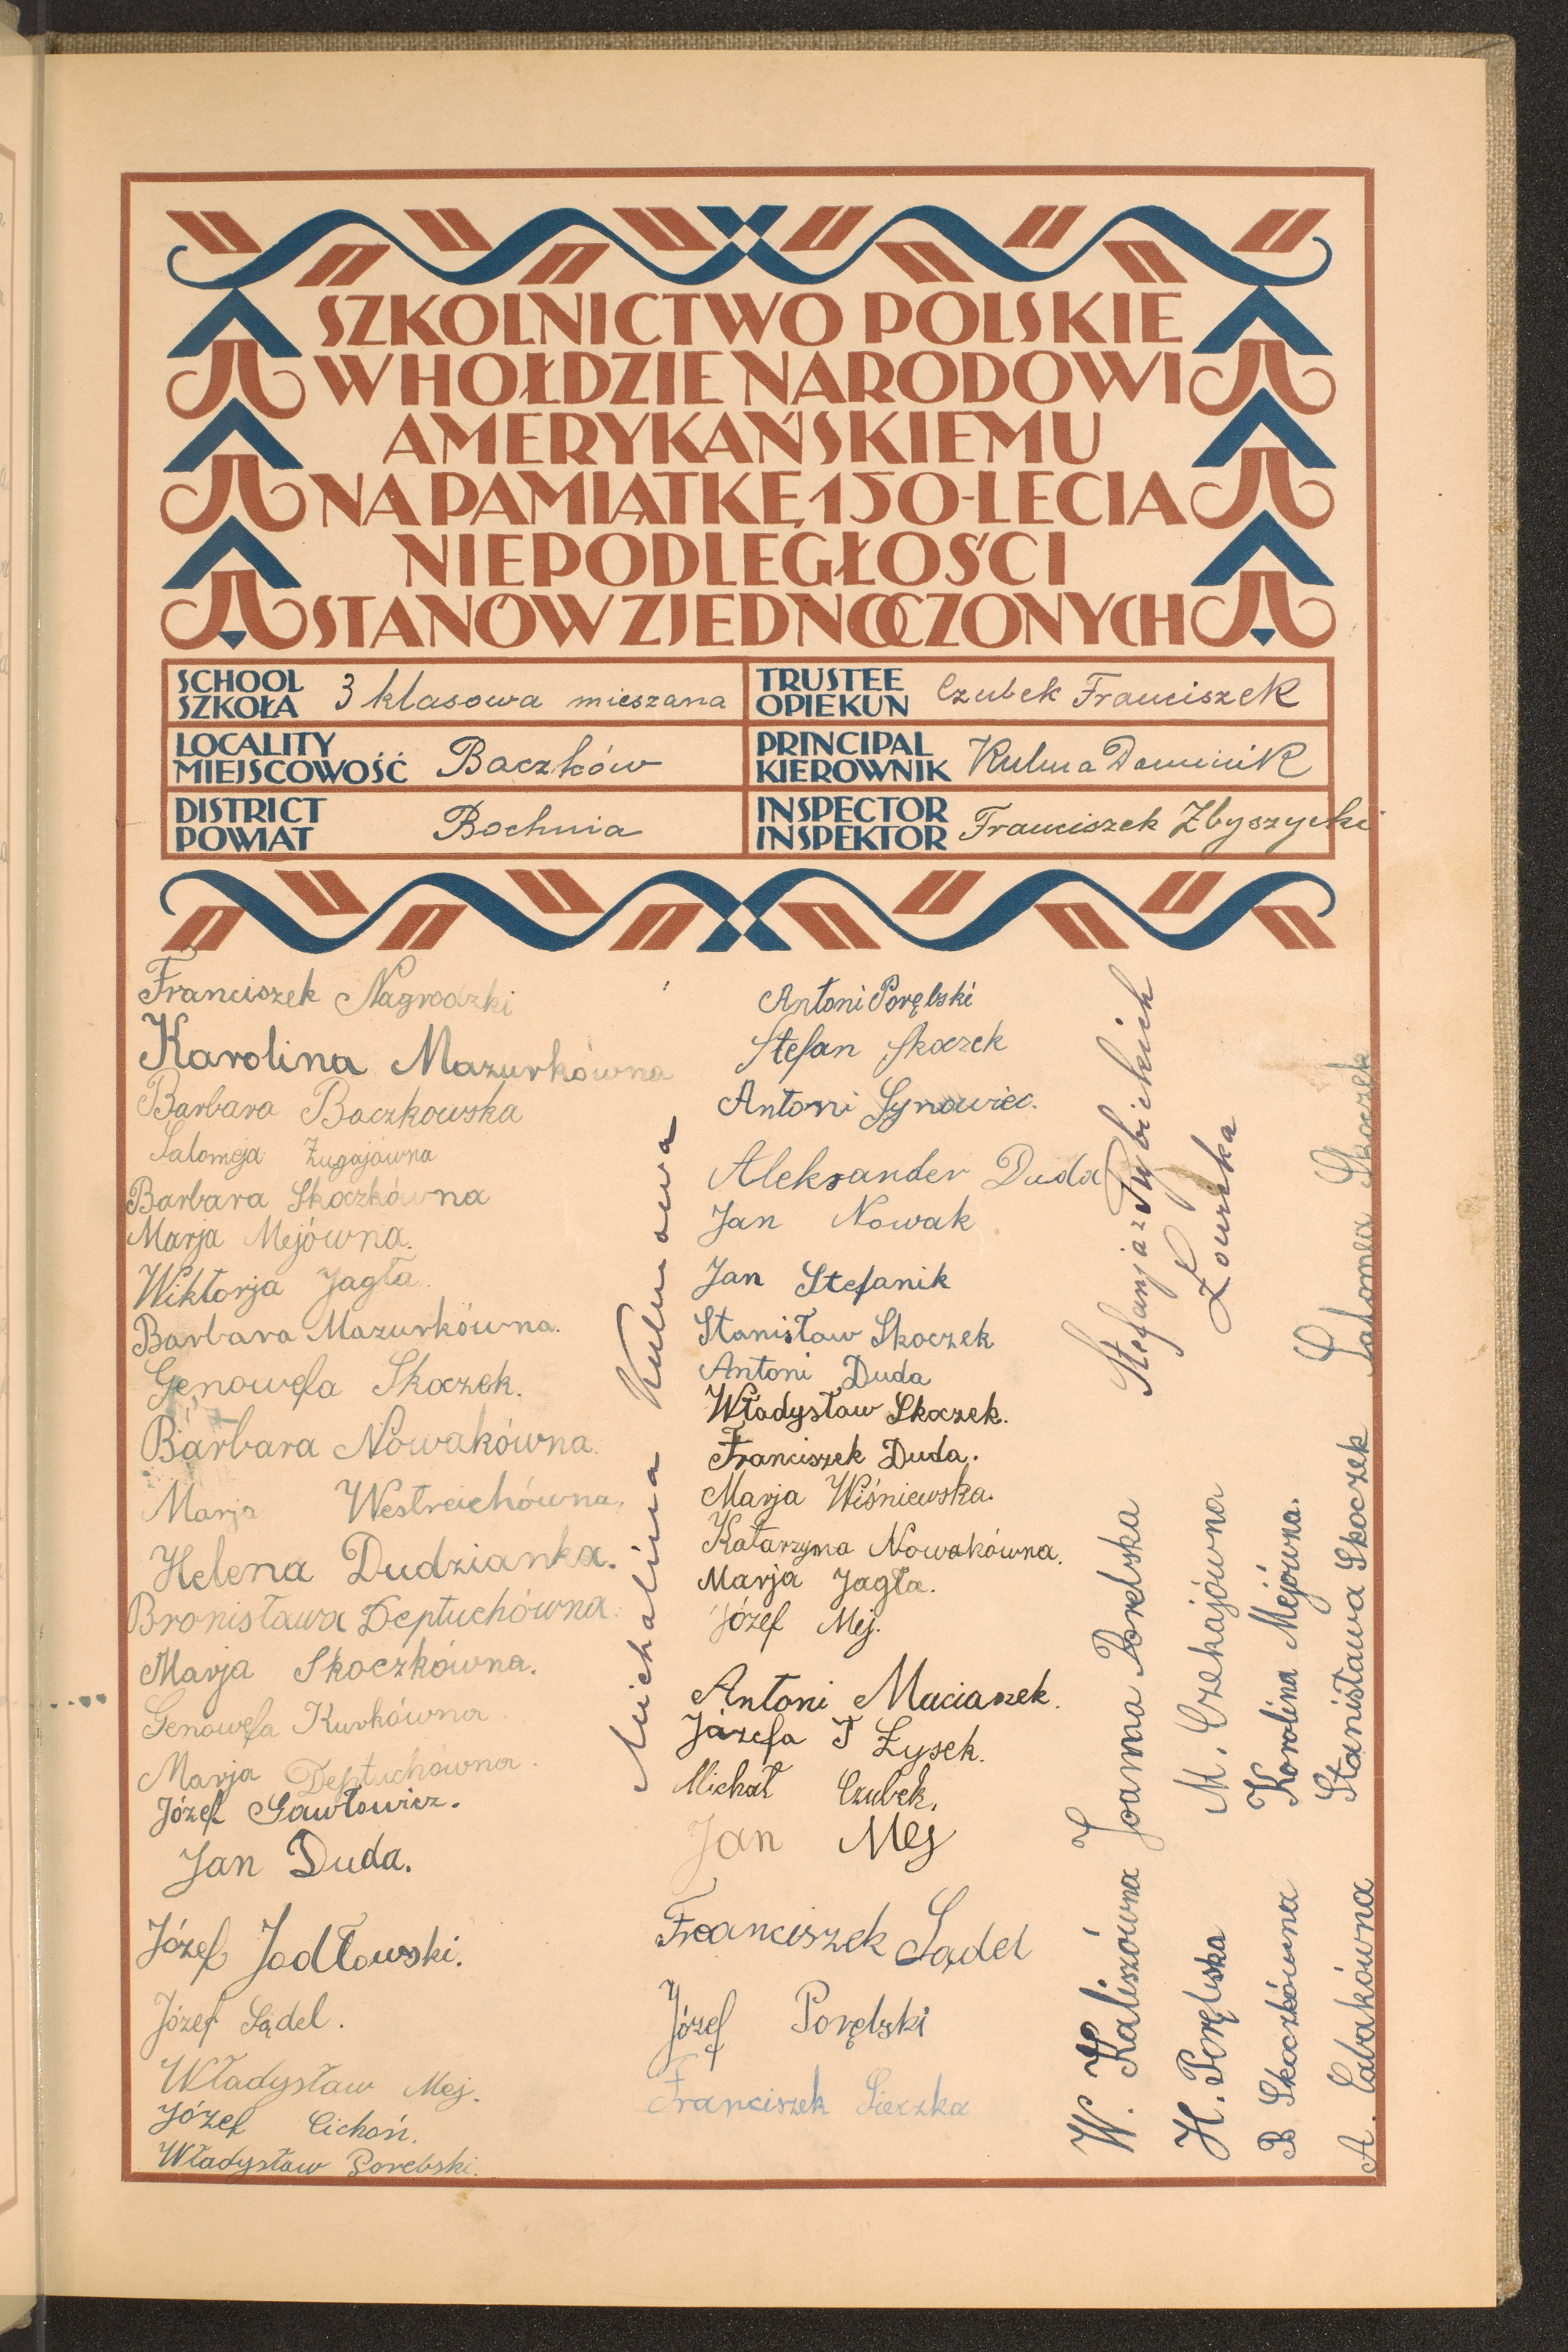 SZKOLNICTWO POLSKIE
W HOŁDZIE NARODOWI
AMERYKAŃSKIEMU
NA PAMIĄTKĘ 150-LECIA
NIEPODLEGŁOŚCI
STANÓW ZJEDNOCZONYCH
SCHOOL
SZKOŁA 3 klasowa mieszana
TRUSTEE
OPIEKUN Czubek Franciszek
LOCALITY
MIEJSCOWOŚĆ Baczków
PRINCIPAL
KIEROWNIK Kulma Dominik
DISTRICT
POWIAT Bochnia
INSPECTOR
INSPEKTOR Franciszek Zbyszycki
Franciszek Nagrodzki
Karolina Mazurkówna
Barbara Baczkowska
Salomeja Żugajówna
Barbara Skoczkówna
Marja Mejówna.
Wiktorja Jagła.
Barbara Mazurkówna.
Genowefa Skoczek.
Barbara Nowakówna.
Marja Westreichówna,
Helena Dudzianka.
Bronisława Deptuchówna.
Marja Skoczkówna.
Genowefa Kurkówna.
Marja Deptuchówna.
Józef Gawłowicz.
Jan Duda.
Józef Jodłowski.
Józef Sądel.
Władysław Mej.
Józef Cichoń.
Władysław Porebski.
Michalina Kulmowa
Antoni Porębski
Stefan Skoczek
Antoni Synowiec.
Aleksander Duda
Jan Nowak
Jan Stefanik
Stanisław Skoczek
Antoni Duda
Władysław Skoczek.
Franciszek Duda.
Marja Wiśniewska.
Katarzyna Nowakówna.
Marja Jagła.
Józef Mej.
Antoni Maciaszek.
Józefa T Łysek.
Michał Czubek.
Jan Mej
Franciszek Sądel
Józef Porębski
Franciszek Sieczka
Stefanja z Rybickich
W. Kaliszówna Joanna Porebska
H. Porębska M. Czekajówna
B Skoczkówna Karolina Mejówna.
A. Cabakówna Stanisława Skoczek Salomea Skoczek